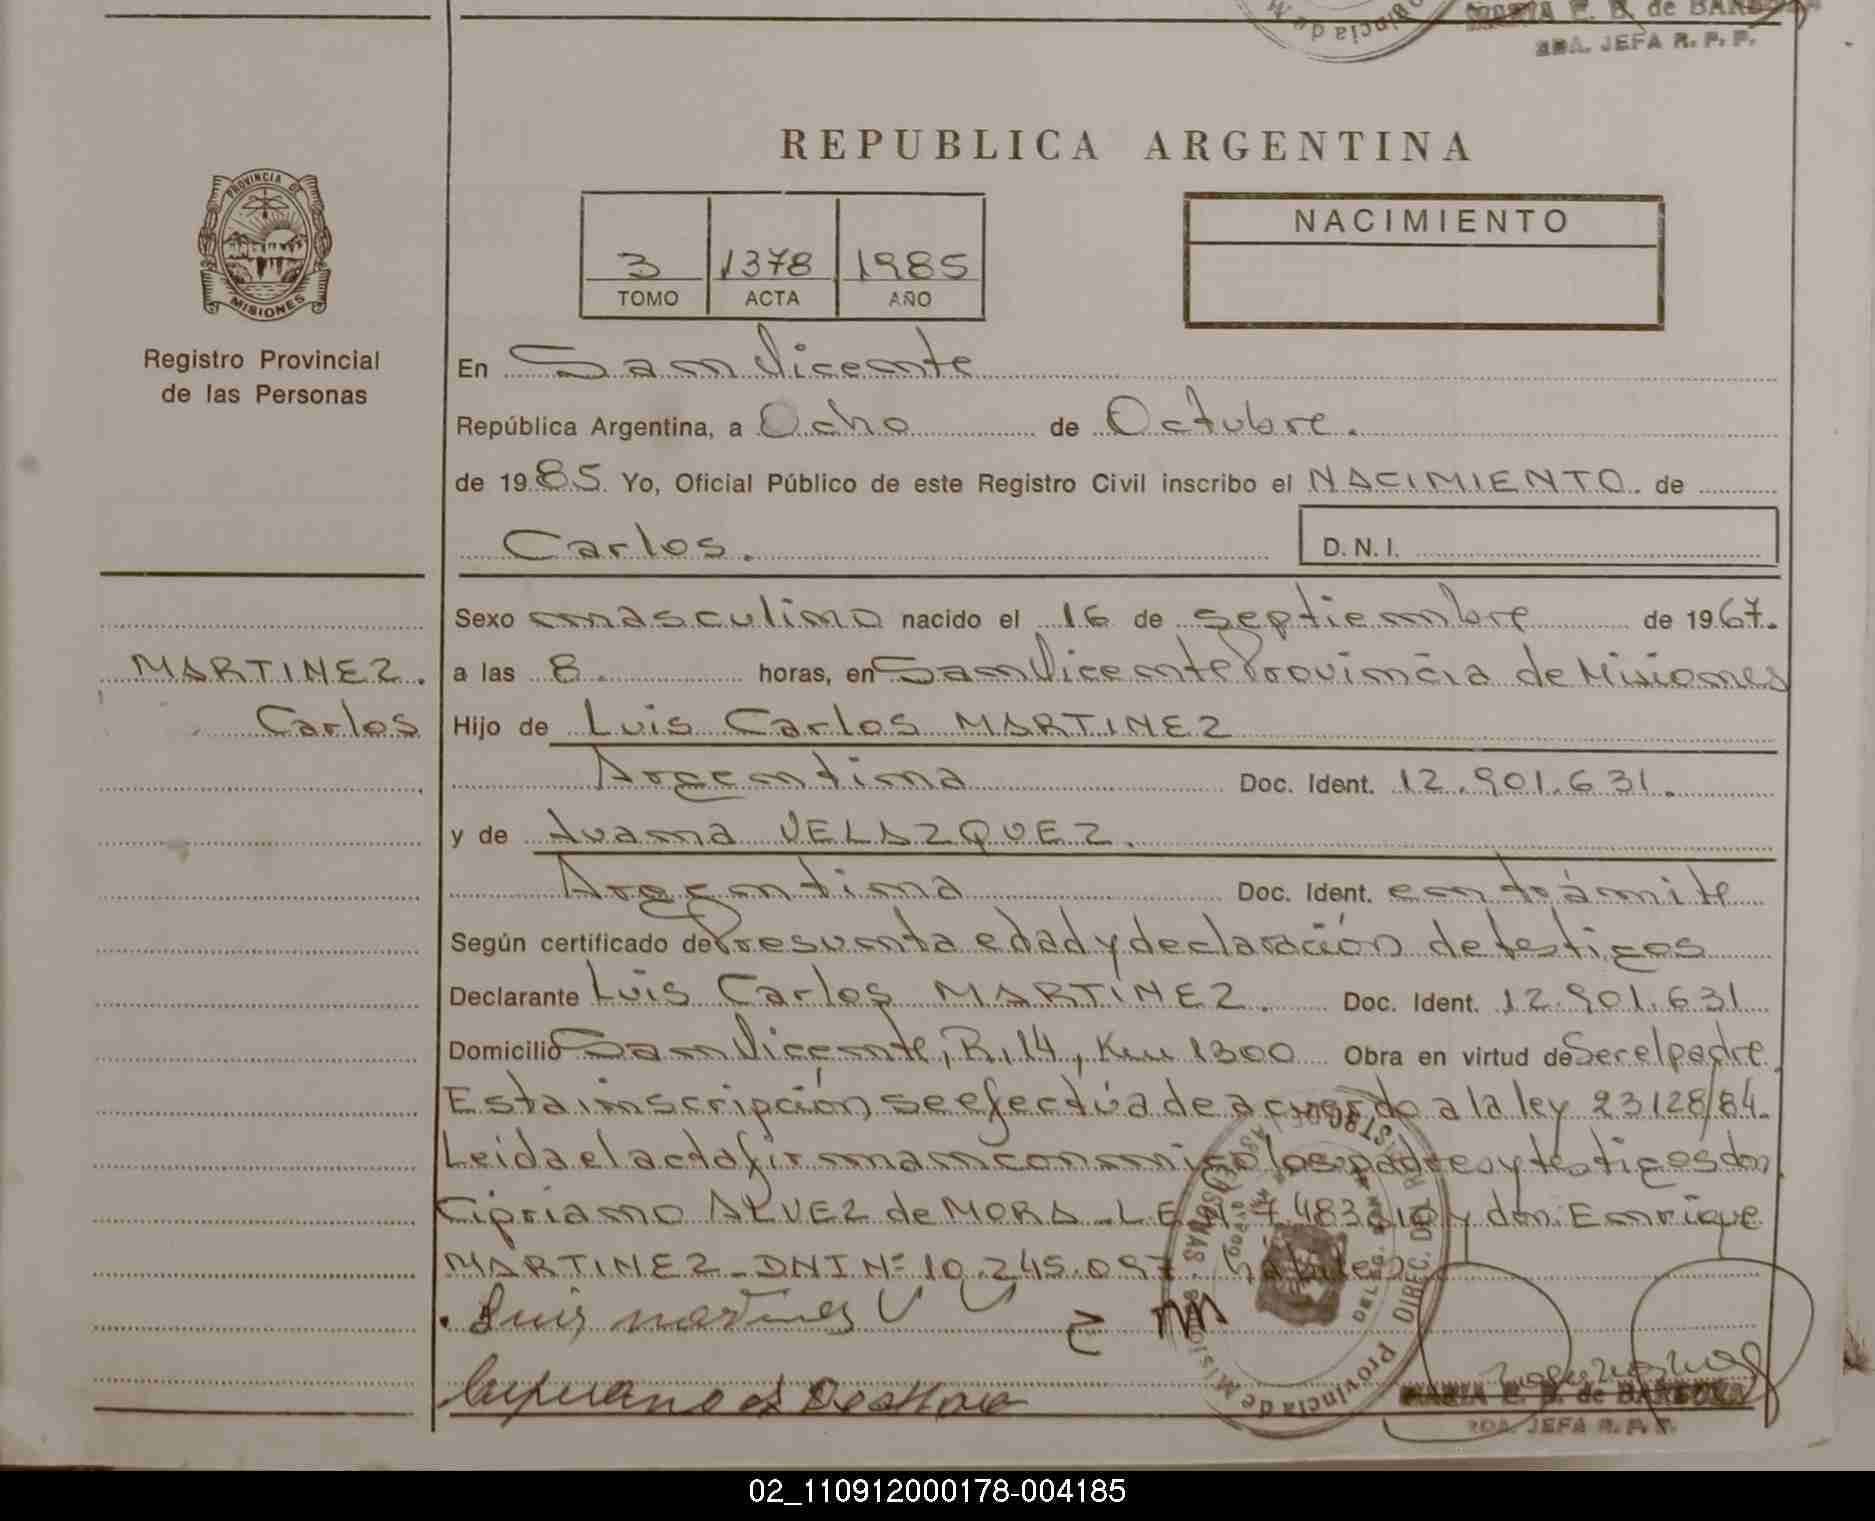 Provincia de M
MARIA E. B. de BARBOZA
2DA. JEFA R. P. P.
REPUBLICA ARGENTINA
PROVINCIA DE
MISIONES
Registro Provincial
de las Personas
3 1378 1985
TOMO ACTA AÑO
NACIMIENTO
En San Vicente
República Argentina, a Ocho de Octubre.
de 1985. Yo, Oficial Público de este Registro Civil inscribo el NACIMIENTO. de
Carlos.
D.N.I.
MARTINEZ.
Carlos
Sexo masculino nacido el 16 de septiembre de 1967.
a las 8. horas, en San Vicente Provincia de Misiones
Hijo de Luis Carlos MARTINEZ
Argentina Doc. Ident. 12.901.631.
y de Juana VELAZQUEZ.
Argentina Doc. Ident. en trámite
Según certificado de Presunta edad y declaración de testigos
Declarante Luis Carlos MARTINEZ. Doc. Ident. 12.901.631
Domicilio San Vicente, R. 14, Km 1300 Obra en virtud de Ser el padre
Esta inscripción se efectúa de acuerdo a la ley 23128/84.
Leida el acta firman conmigo los padres y testigos don
Cipriano ALVEZ de MORA - L E Nº 7.483.610 y don Enrique
MARTINEZ - DNI Nº 10.245.097 hábiles
Luis martines
Provincia de Misiones
DIREC. DEL REGIST.
MARIA E. B. de BARBOZA
2DA. JEFA R. P. P.
02_110912000178-004185